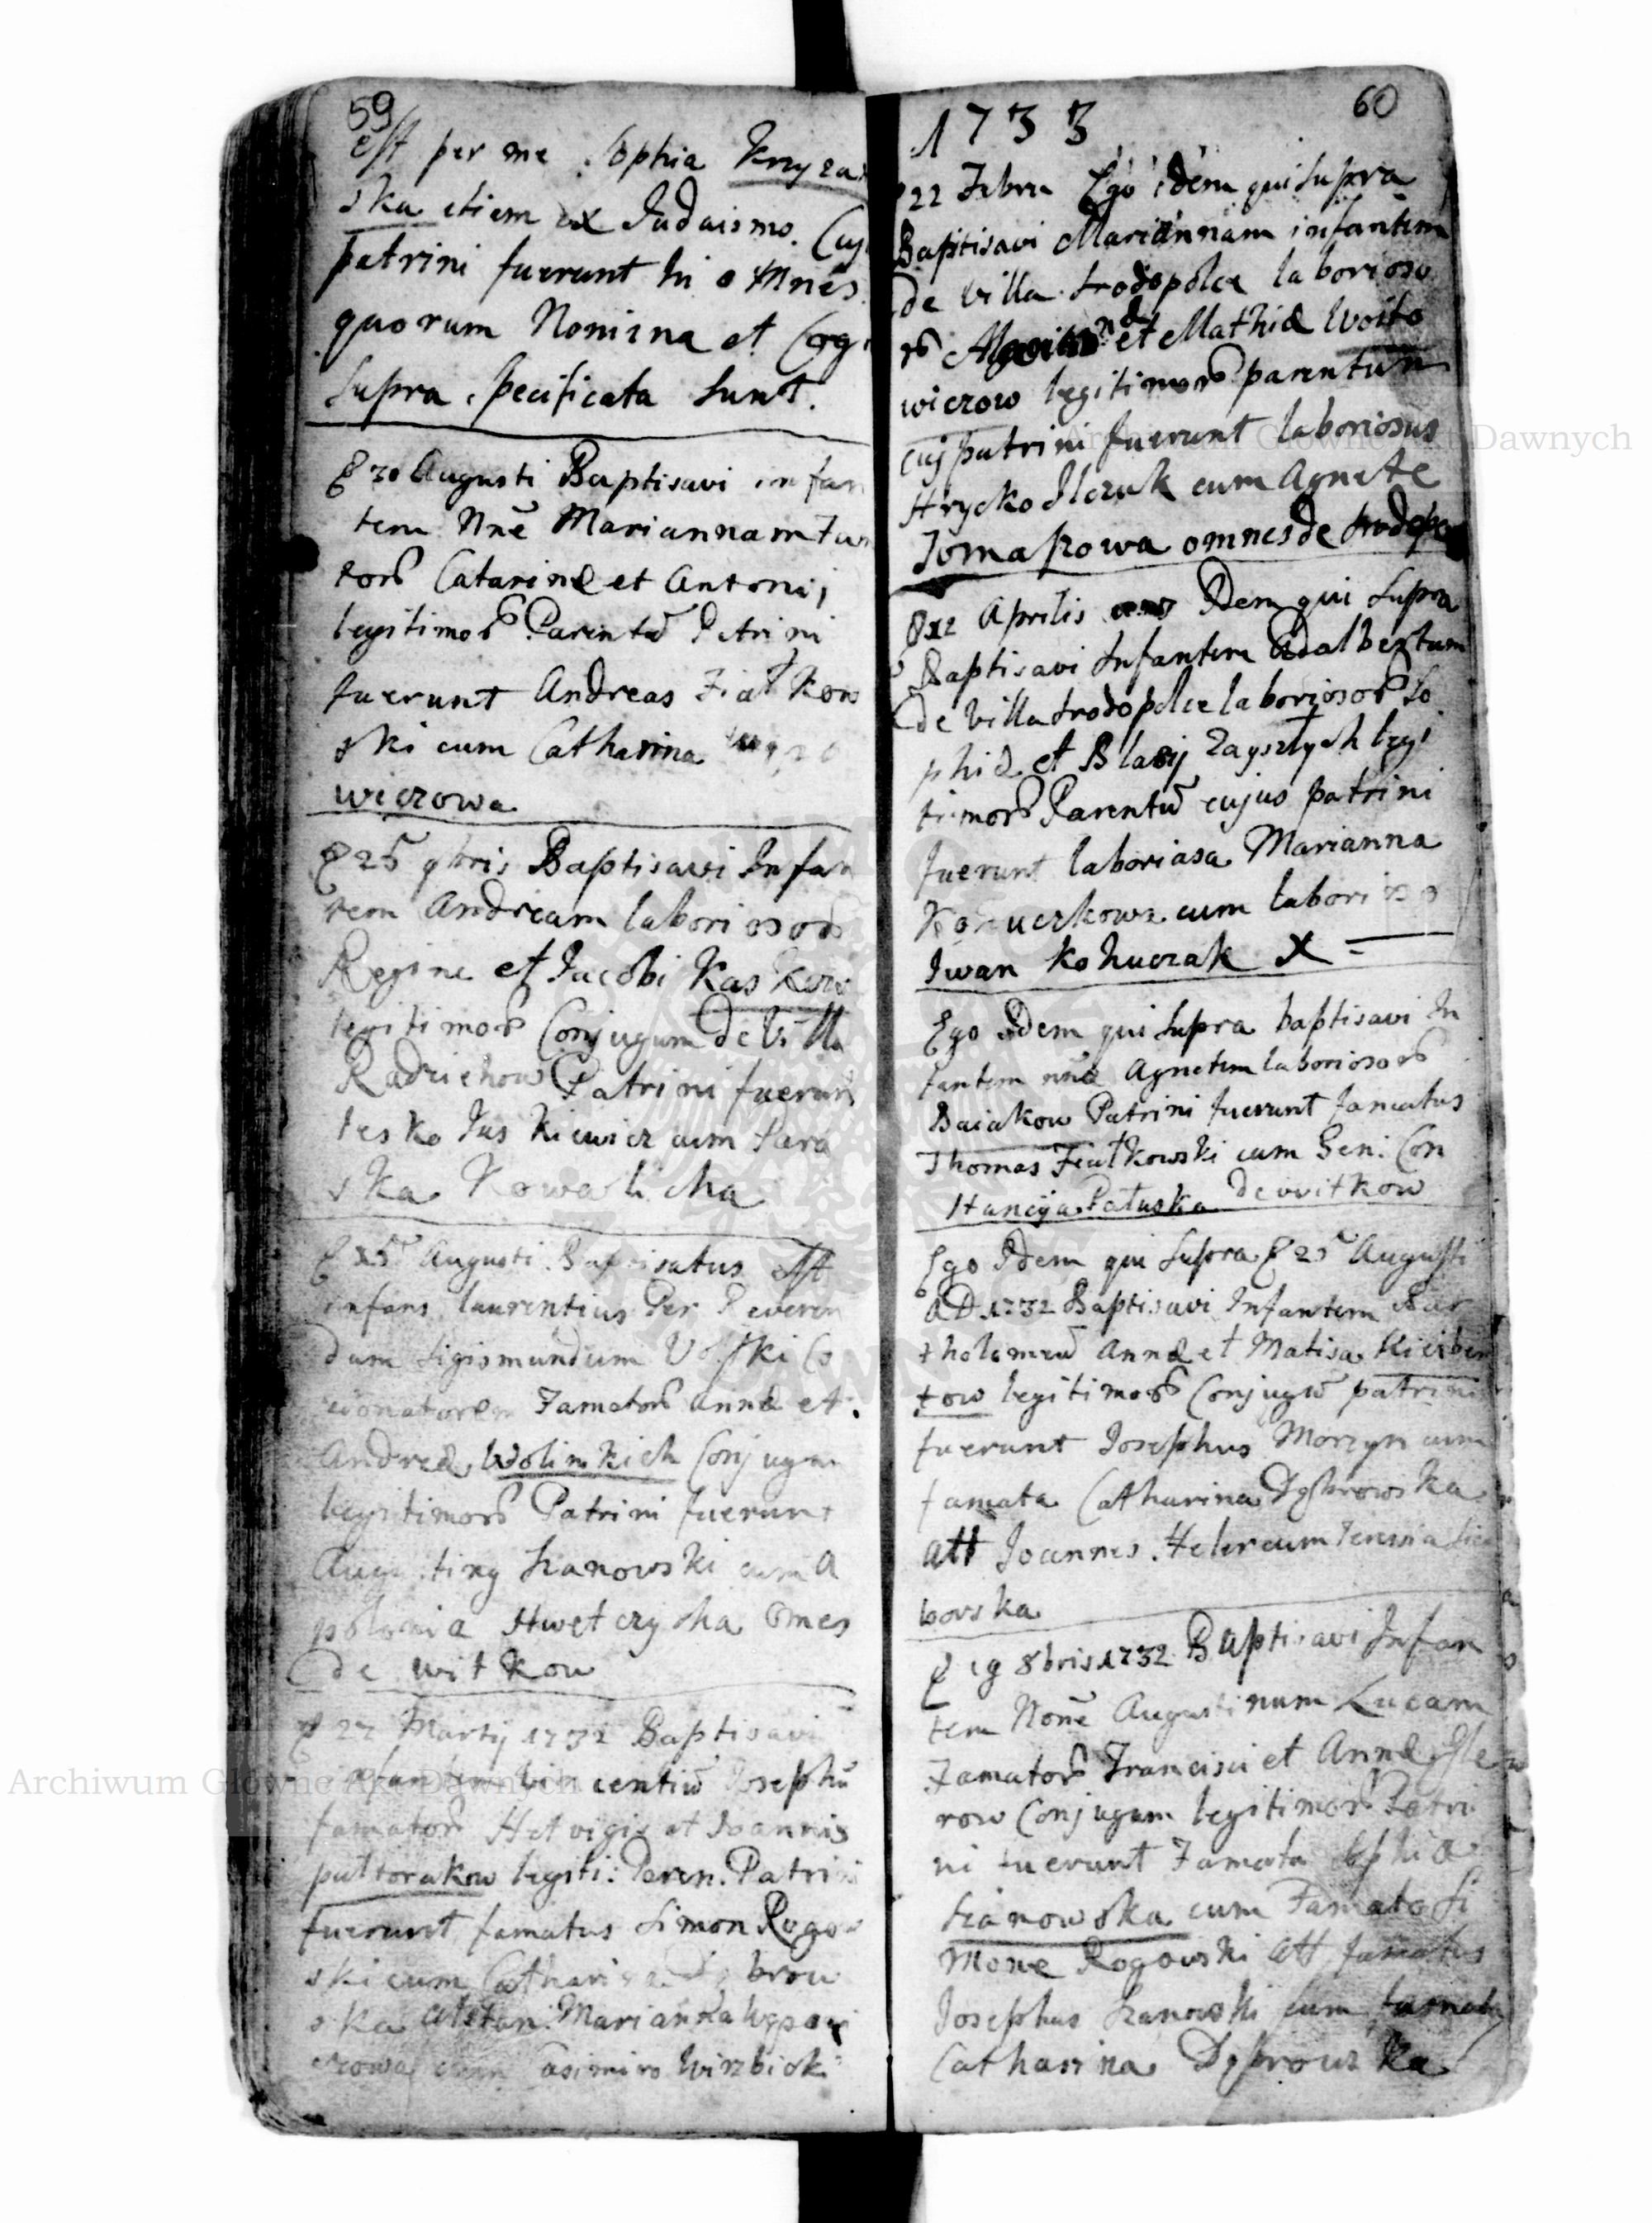 59
est per me Sophia Krzyza
ska etiem ex Judaismo. Cuj
patrini fuerunt hi omnes
quorum Nomina et Cog
supra specificata sunt.
30 Augusti Baptisavi infan
tem Nne Mariannam Fa
torũ Catarinæ et Antonii
legitimorũ Parentũ Patrini
fuerunt Andreas Fiałkow
ski cum Catharina
wiczowa
25 9bris Baptisavi Infan
tem Andream laboriosorũ
Reginæ et Jacobi Kaskow
legitimorũ Conjugum de Villa
Radziehow Patrini fuerunt
lesko Juskiewicz cum Para
ska Kowalicha
25 Augusti Baptisatus est
infans laurentius Per Reveren
dum Sigismundum Volski Co
cionatorem Famatorũ Annæ et
Andreæ Wolinskich Conjugu
legitimorũ Patrini fuerunt
Augustinq Szanowski cum A
polonia Hwetczycha omes
de witkow
27 Martij 1732 Baptisavi
infantem Vincentiũ Josephũ
famatorũ Hetvigis et Joannis
puttorakow legiti: Paren. Patrini
fuerunt famatus Simon Rogow
ski cum Catharina Dąbrow
ska Attstan Marianna
czowa cum Casimiro Wirzbick
60
1733
22 Febru Ego idem qui supra
Baptisavi Mariannam infantem
de villa srodopolce laborioso
rũ et Mathiæ Woito
wiczow legitimorũ parentũ
cuj patrini fuerunt laboriosus
Hrycko Ilczuk cum Agnete
Tomaszowa omnes de srodopo
12 Aprilis Idem qui supra
Baptisavi Infantem Adalbertum
de Villa srodopolce laboriosorũ So
phiæ et Blasij Zagsztych legi
timorũ Parentũ cujus patrini
fuerunt laboriasa Marianna
cum laborioso
Iwan Kohuczak X
Ego Idem qui supra baptisavi In
fantem nne Agnetem laboriosorũ
Baiakow Patrini fuerunt famatus
Thomas Fiałkowski cum Gen: Con
stancija Pałuska de witkow
Ego Idem qui supra 25 Augusti
AD 1732 Baptisavi Infantem Bar
tholomeũ Annæ et Matisa
tow legitimorũ Conjugũ patrini
fuerunt Josephus Morzyn cum
famata Catharina Dąbrowska
Att Joannes Heler cum Teressia
bovska
19 8bris 1732 Baptisavi Infan
tem None Augustinum Lucam
Famatorũ Francisci et Annæ Hele
row Conjugum legitimorũ Patri
ni fuerunt Famata Sophia
Szanowska cum Famato Si
mone Rogowski Att famatus
Josephus Szanowski cum famata
Catharina Dąbrowska
Archiwum Główne Akt Dawnych
Archiwum Główne Akt Dawnych